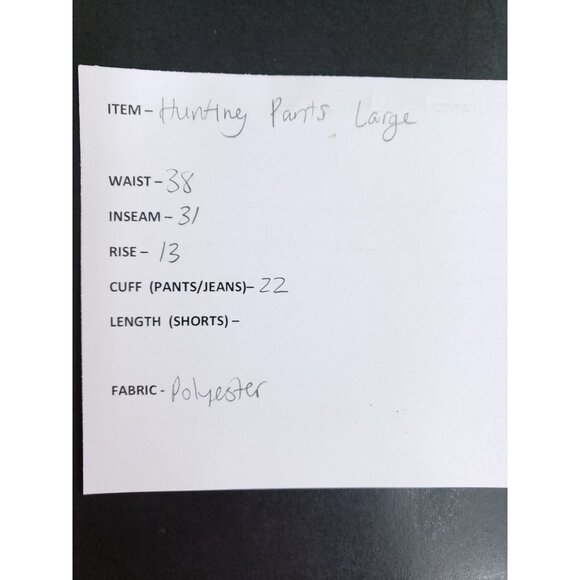 ITEM – Hunting Pants Large
WAIST – 38
INSEAM – 31
RISE – 13
CUFF (PANTS/JEANS)– 22
LENGTH (SHORTS) –
FABRIC - Polyester